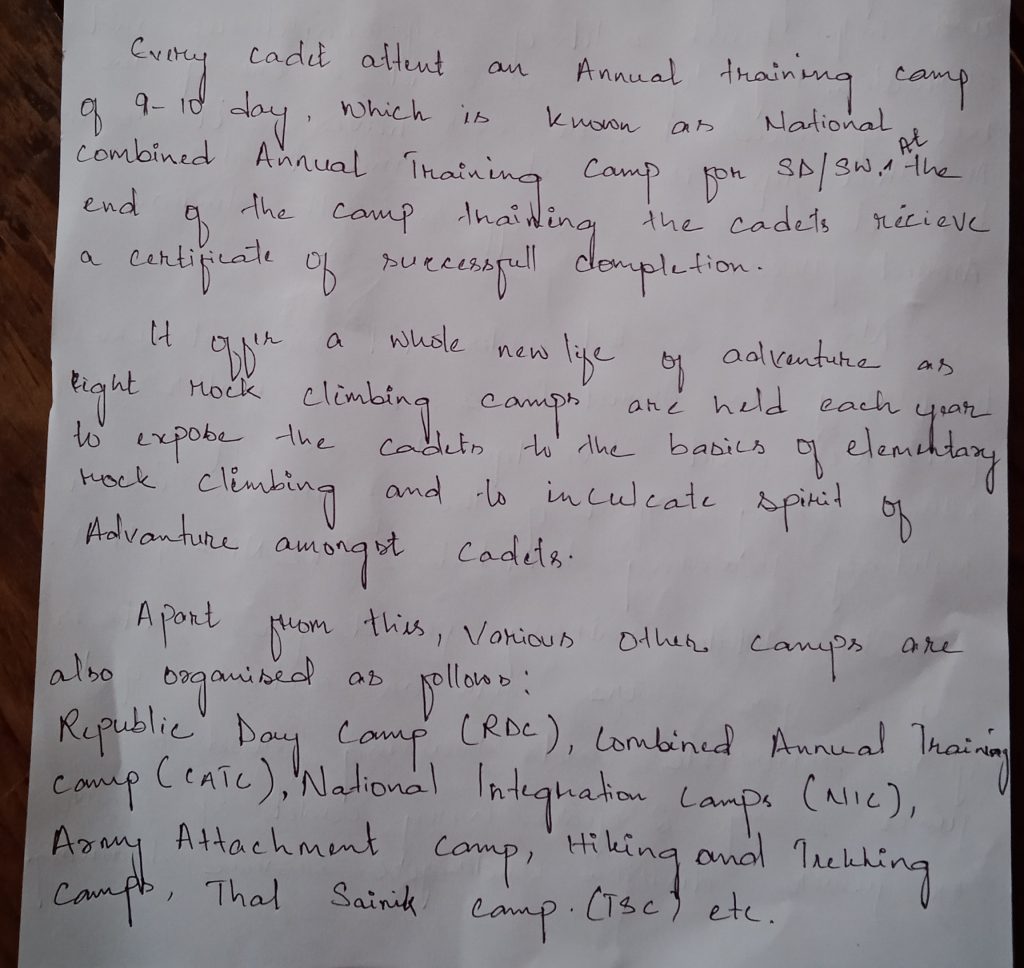 Every cadet attent an Annual training camp
of 9-10 day, which is known as National
combined Annual Training Camp for SD/SW. At the
end of the camp training the cadets recieve
a certificate of successfull completion.
It offer a whole new life of adventure as
Eight rock climbing camps are held each year
to expose the cadets to the basics of elementary
rock climbing and to inculcate spirit of
Advanture amongst cadets.
Apart from this, Various other camps are
also organised as follows:
Republic Day Camp (RDC), Combined Annual Training
Camp (CATC), National Integration Camps (NIC),
Army Attachment Camp, Hiking and Trekking
Camps, Thal Sainik Camp. (TSC) etc.